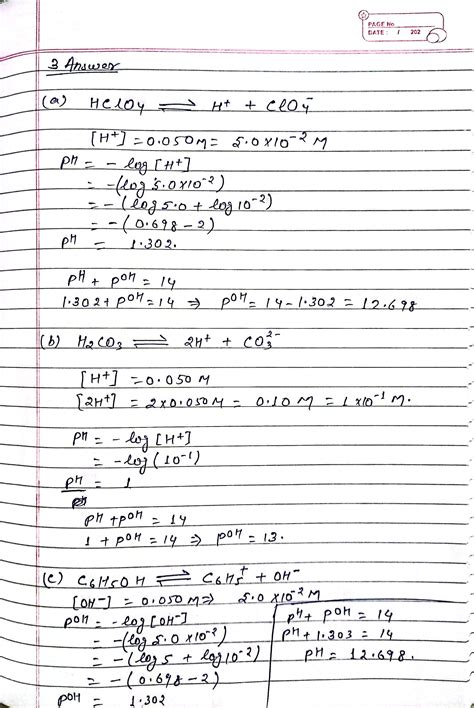 PAGE No.
DATE : / 202
3 Answer
(a) HClO4 ⇌ H+ + ClO4-
[H+] = 0.050M = 5.0×10-2 M
pH = - log [H+]
= -(log 5.0×10-2)
= -(log 5.0 + log 10-2)
= -(0.698-2)
pH = 1.302.
pH + pOH = 14
1.302 + pOH = 14 ⇒ pOH = 14-1.302 = 12.698
(b) H2CO3 ⇌ 2H+ + CO3 2-
[H+] = 0.050 M
[2H+] = 2×0.050M = 0.10 M = 1×10-1 M.
pH = - log [H+]
= - log (10-1)
pH = 1
pH + pOH = 14
1 + pOH = 14 ⇒ pOH = 13.
(c) C6H5OH ⇌ C6H5+ + OH-
[OH-] = 0.050 M ⇒ 5.0×10-2 M
pOH = - log [OH-]
= -(log 5.0×10-2)
= -(log 5 + log 10-2)
= -(0.698-2)
pOH = 1.302
pH + pOH = 14
pH + 1.303 = 14
pH = 12.698.